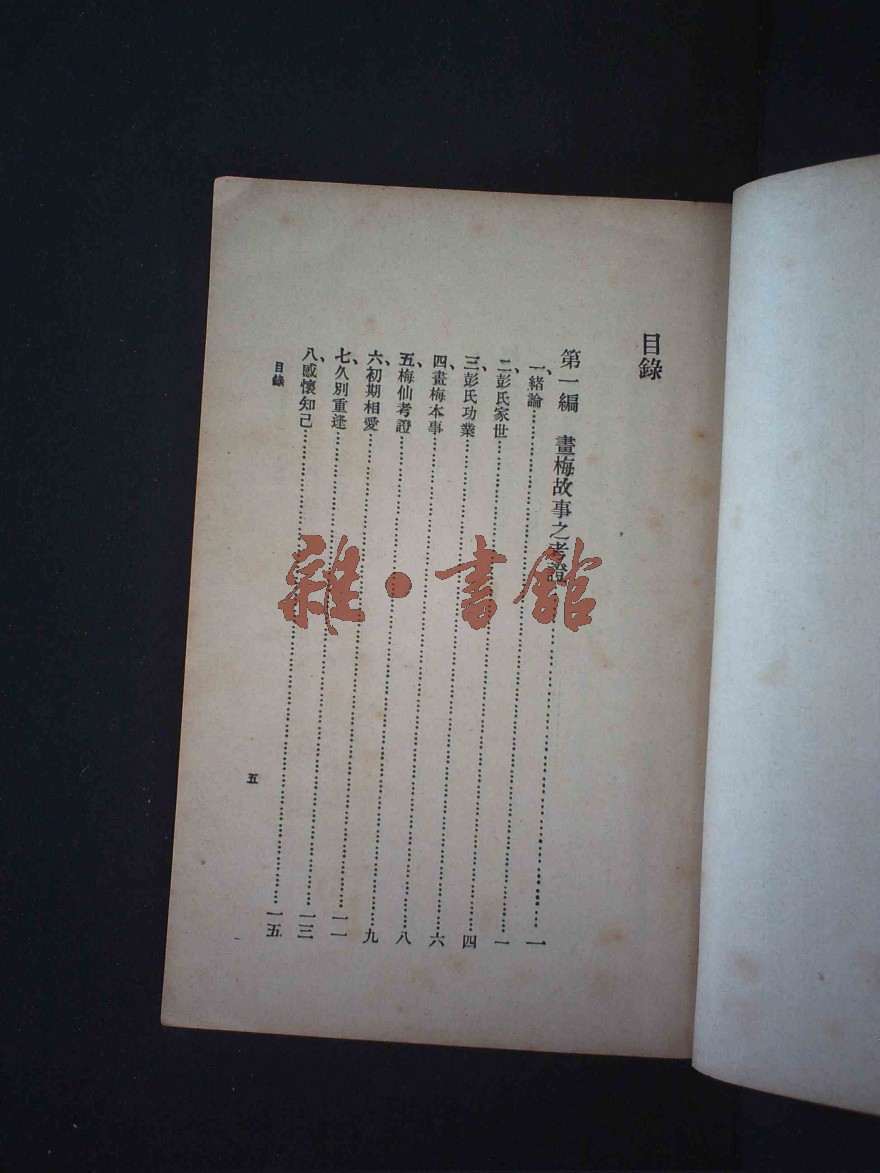 目錄
第一編　畫梅故事之考證……一
一、緒論……一
二、彭氏家世……四
三、彭氏功業……六
四、畫梅本事……八
五、梅仙考證……九
六、初期相愛……一一
七、久別重逢……一三
八、感懷知己……一五
目錄
五
雜·書館